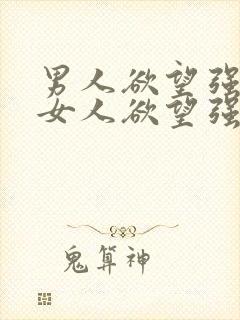 男人欲望强
女人欲望强
鬼算神